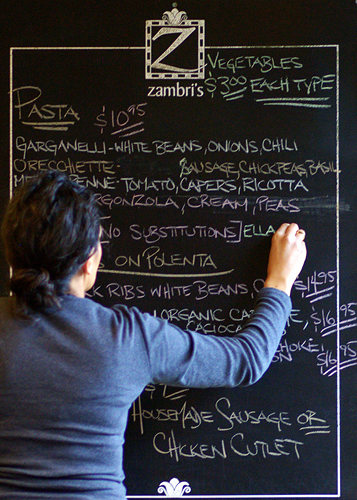 Z
zambri's
VEGETABLES
$3.00 EACH TYPE
PASTA $10.95
GARGANELLI-WHITE BEANS, ONIONS, CHILI
ORECCHETTE- SAUSAGE, CHICKPEAS, BASIL
TOMATO, CAPERS, RICOTTA
CREAM, PEAS
NO SUBSTITUTIONS] ELLA
ON POLENTA
RIBS WHITE BEANS, $14.95
ORGANIC $16.95
$16.95
HOUSEMADE SAUSAGE OR
CHICKEN CUTLET